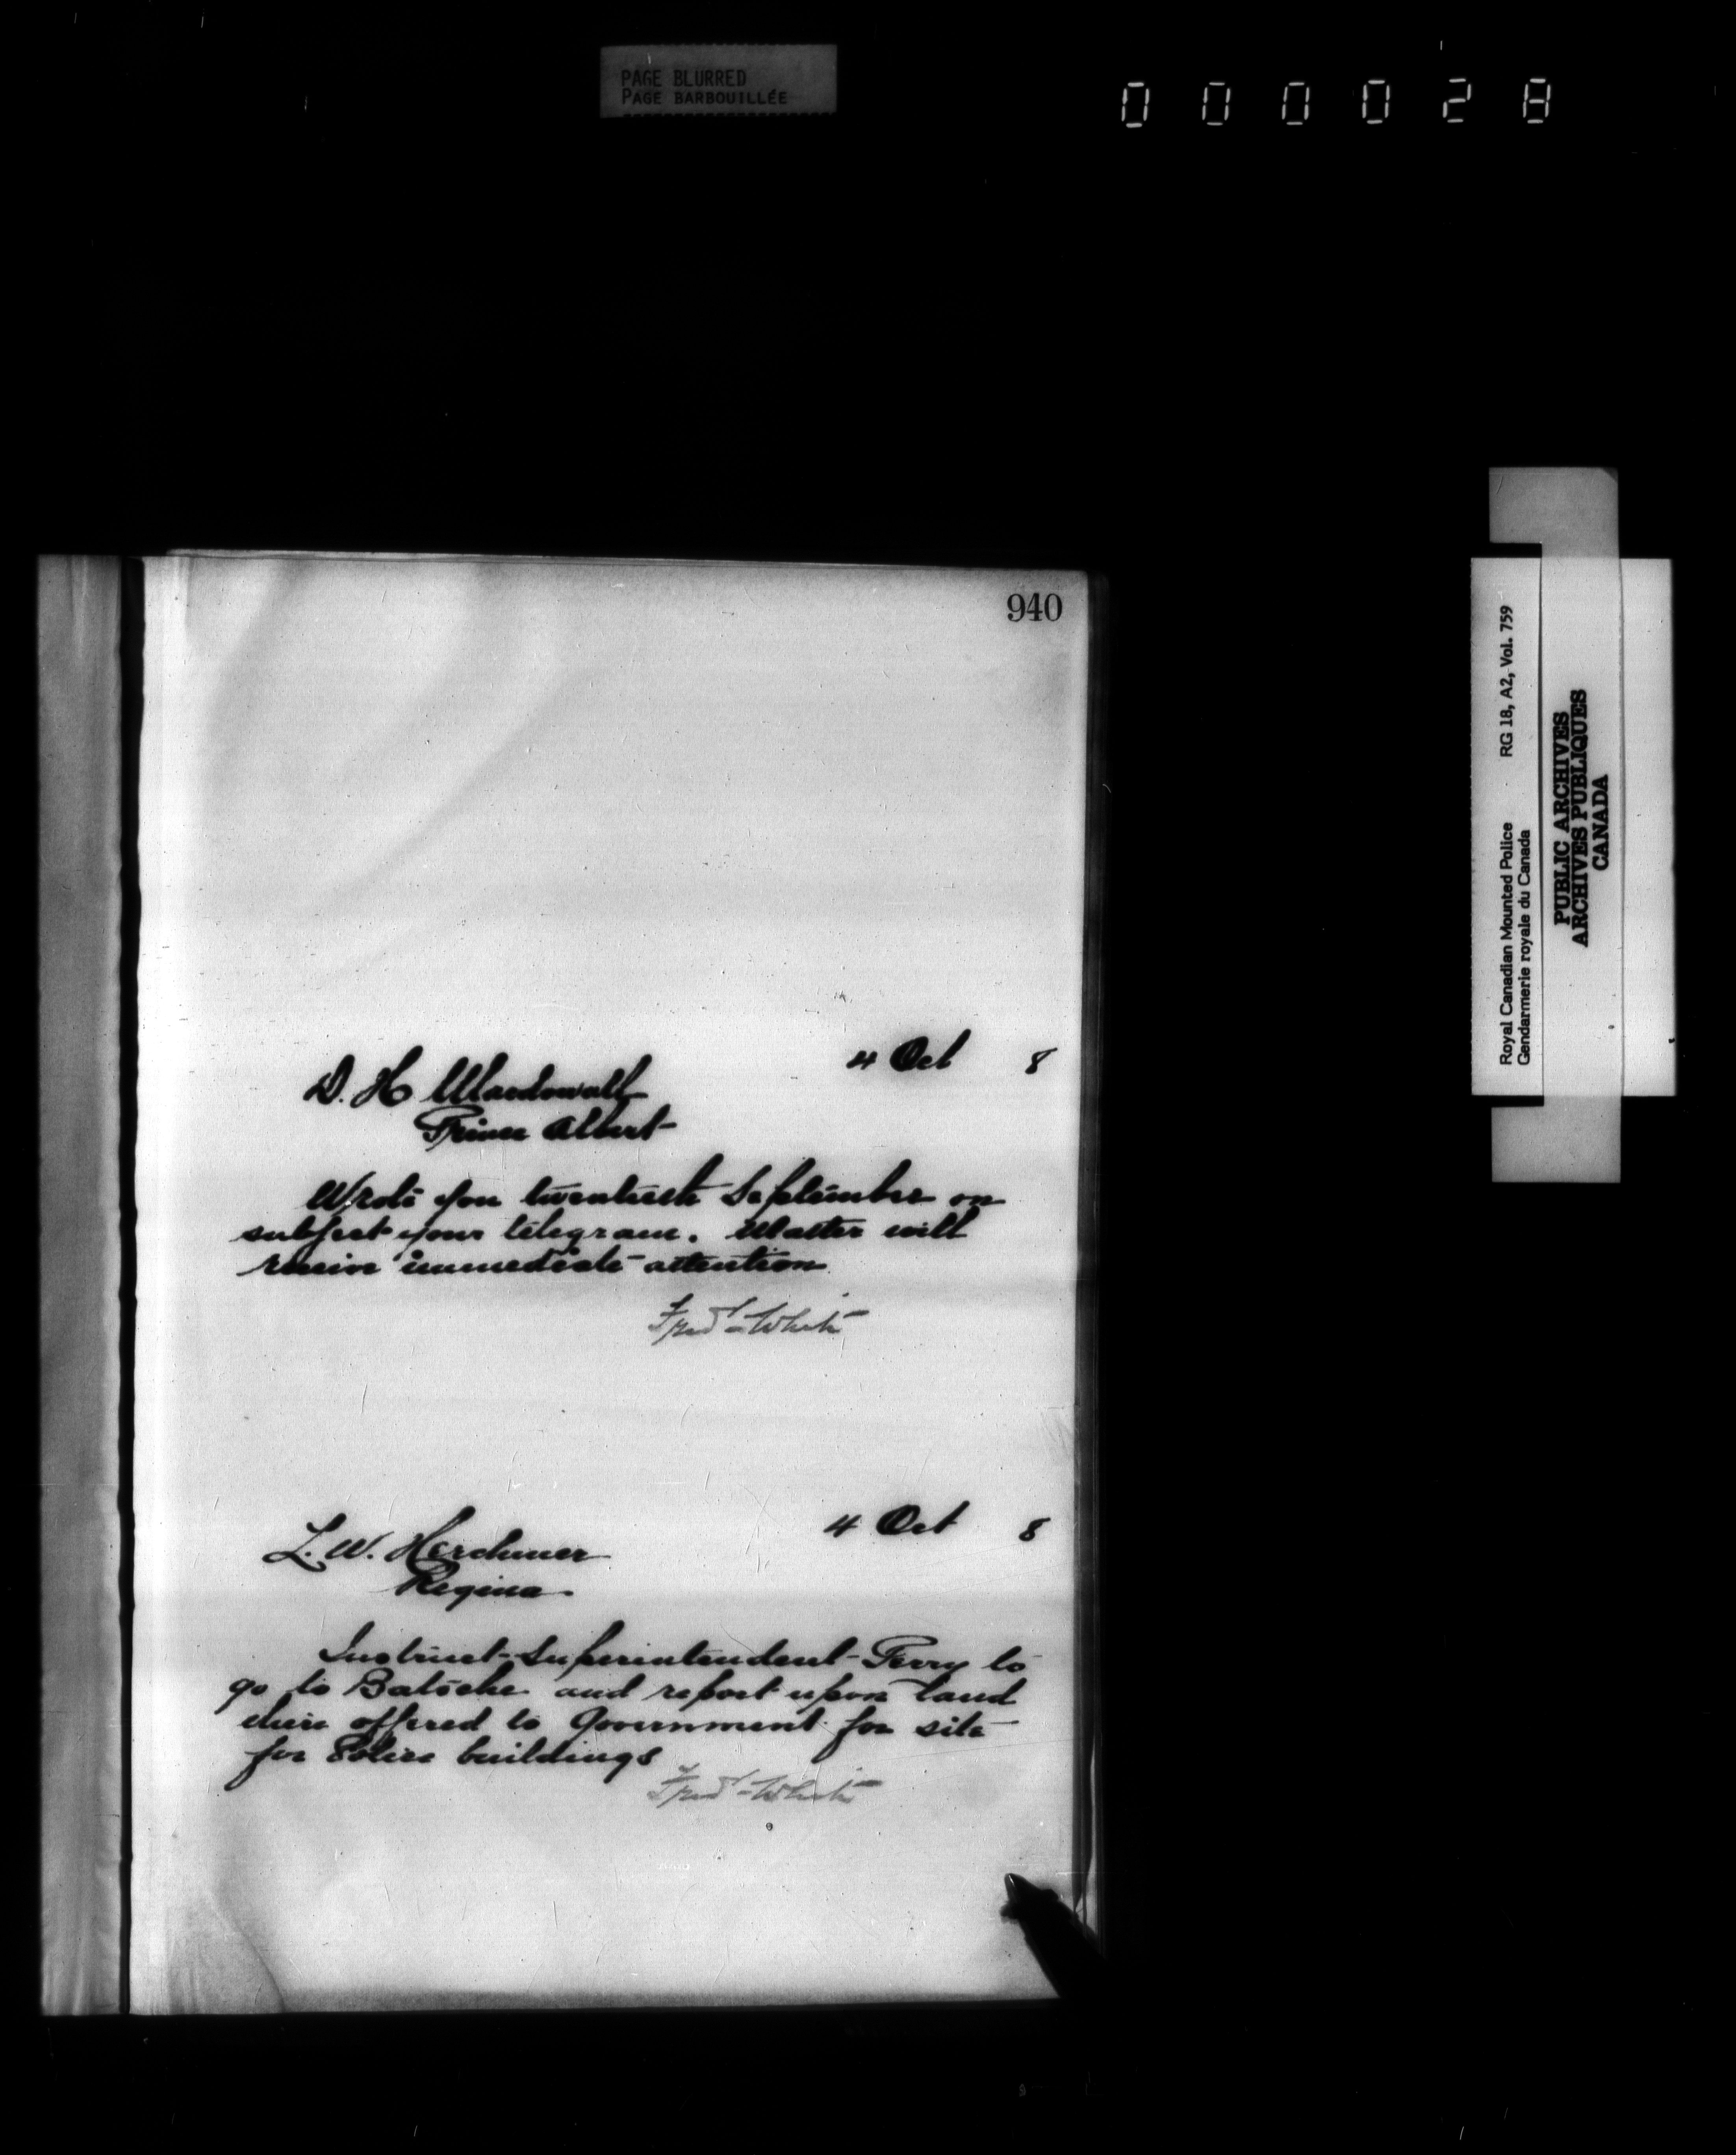 PAGE BLURRED
PAGE BARBOUILLÉE
000028
940
4 Oct 8
D. H Macdowall
Prince Albert
Wrote you twentieth September on
subject your telegram. Matter will
receive immediate attention
Fred White
4 Oct 8
L. W. Herchmer
Regina
Instruct Superintendent Perry to
go to Batoche and report upon land
there offered to Government for site
for Police buildings
Fred White
Royal Canadian Mounted Police RG 18, A2, Vol. 759
Gendarmerie royale du Canada
PUBLIC ARCHIVES
ARCHIVES PUBLIQUES
CANADA